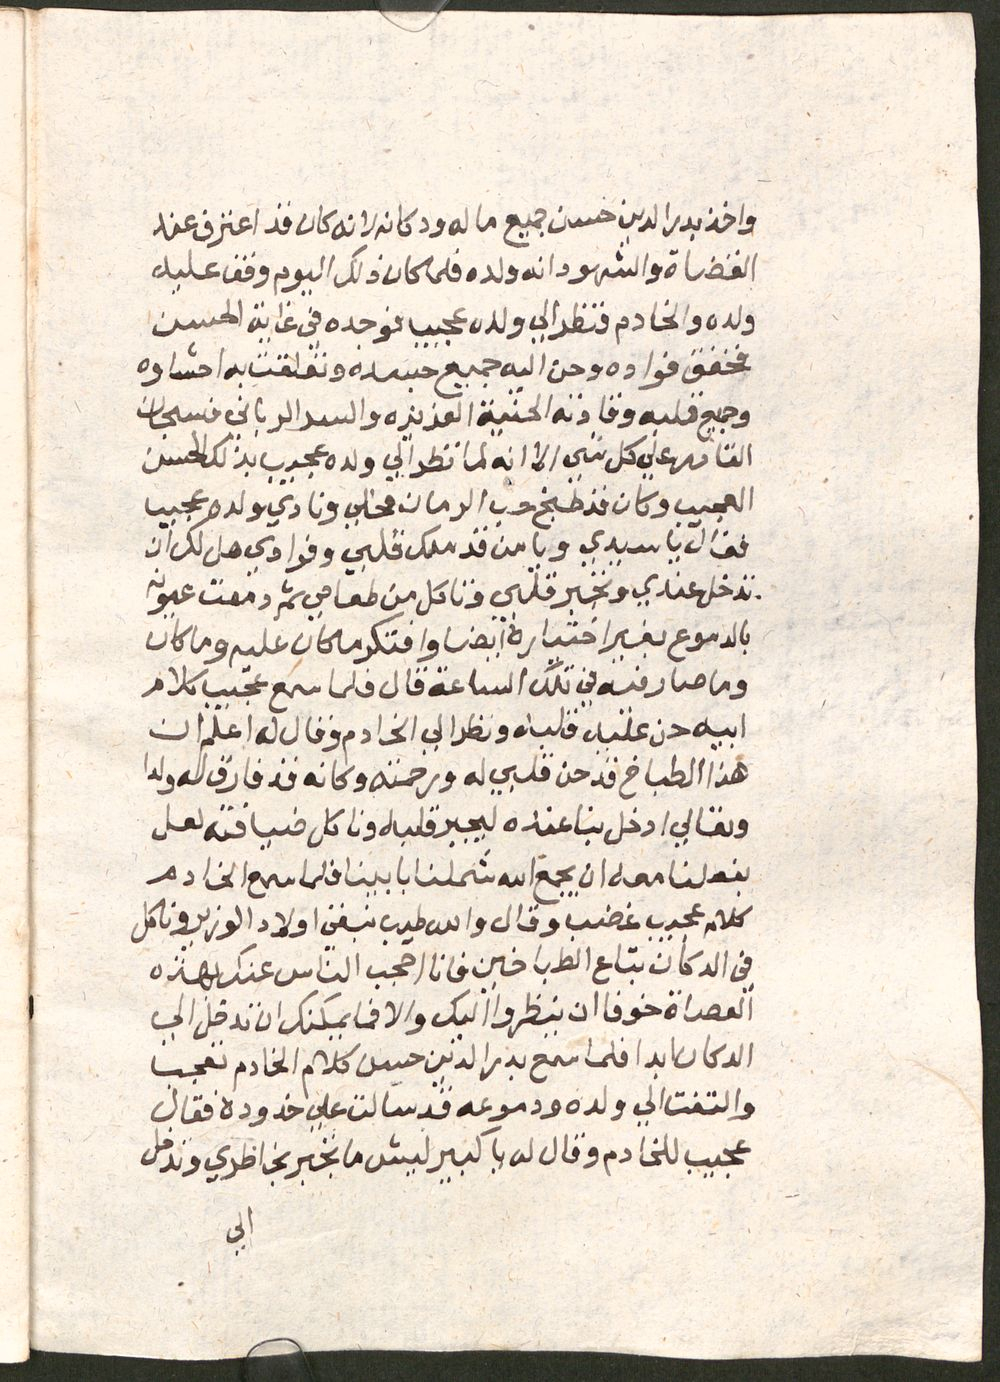 واخذ بدر الدين حسن جميع ماله ودكانه لانه كان قد اعترف عند
القضاة والشهود انه ولده فلما كان ذلك اليوم وقف عليه
ولده والخادم فنظر الي ولده عجيب فوجده في غاية الحسن
فخفق فواده وحن اليه جميع جسده وتعلقت به احشاوه
وجميع قلبه وقادته الحنية العزيزه والسر الرباني فسبحان
القادر علي كل شي الا انه لما نظر الي ولده عجيب بذلك الحسن
العجيب وكان قد طبخ حب الرمان محلي ونادي ولده عجيب
فقال يا سيدي ويا من قد ملك قلبي وفوادي هل لك ان
تدخل عندي وتجبر قلبي وتاكل من طعامي ثم دمعت عيونه
بالدموع بغير اختياره ايضا وافتكر ما كان عليه وما كان
وما صار فيه في تلك الساعة قال فلما سمع عجيب كلام
ابيه حن عليه قلبه ونظر الي الخادم وقال له اعلم ان
هذا الطباخ قد حن قلبي له ورحمته وكانه قد فارق له ولدا
وتعالي ادخل بنا عنده ليجبر قلبه وناكل ضيافته لعل
بفعلنا معه ان يجمع الله شملنا بابينا فلما سمع الخادم
كلام عجيب غضب وقال والله طيب تبقي اولاد الوزير وتاكل
في الدكان بتاع الطباخين فانا احجب الناس عنك بهذه
العصاة خوفا ان ينظروا اليك والا فما يمكنك ان تدخل الي
الدكان ابدا فلما سمع بدر الدين حسن كلام الخادم تعجب
والتفت الي ولده ودموعه قد سالت علي خدوده فقال
عجيب للخادم وقال له يا كبير ليش ما تجبر بخاطري وتدخل
الي